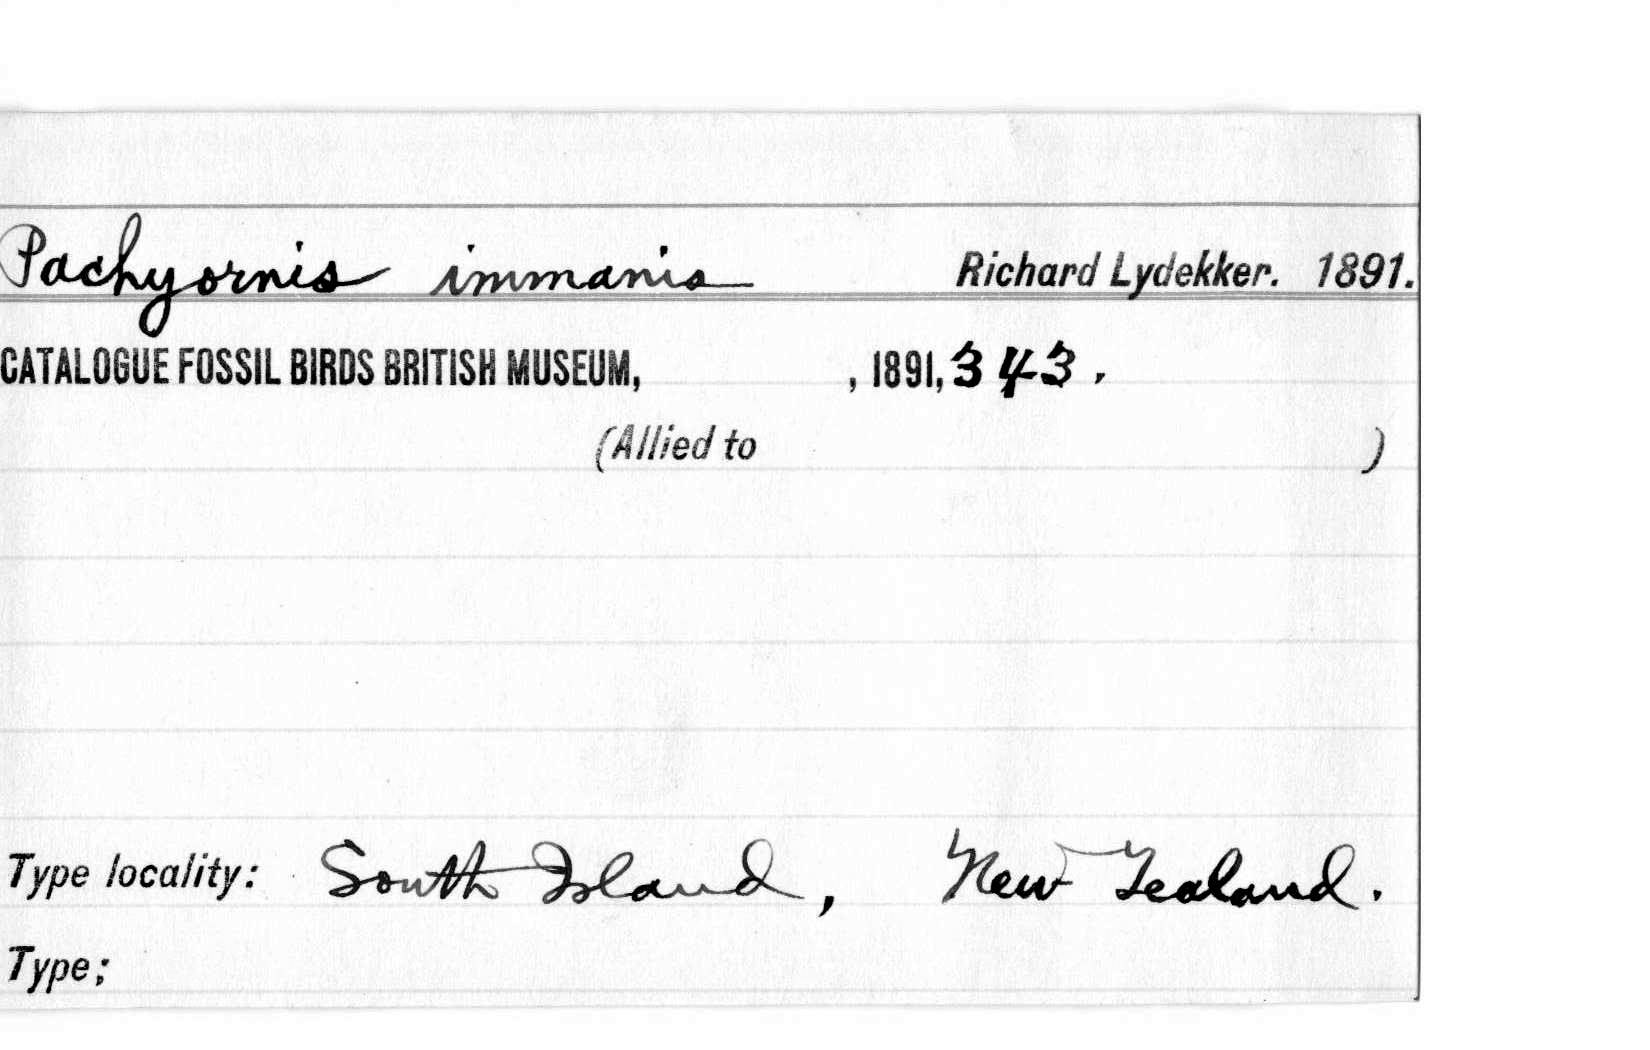 Pachyornis immanis Richard Lydekker. 1891.
CATALOGUE FOSSIL BIRDS BRITISH MUSEUM, , 1891, 343.
(Allied to )
Type locality: South Island, New Zealand.
Type;